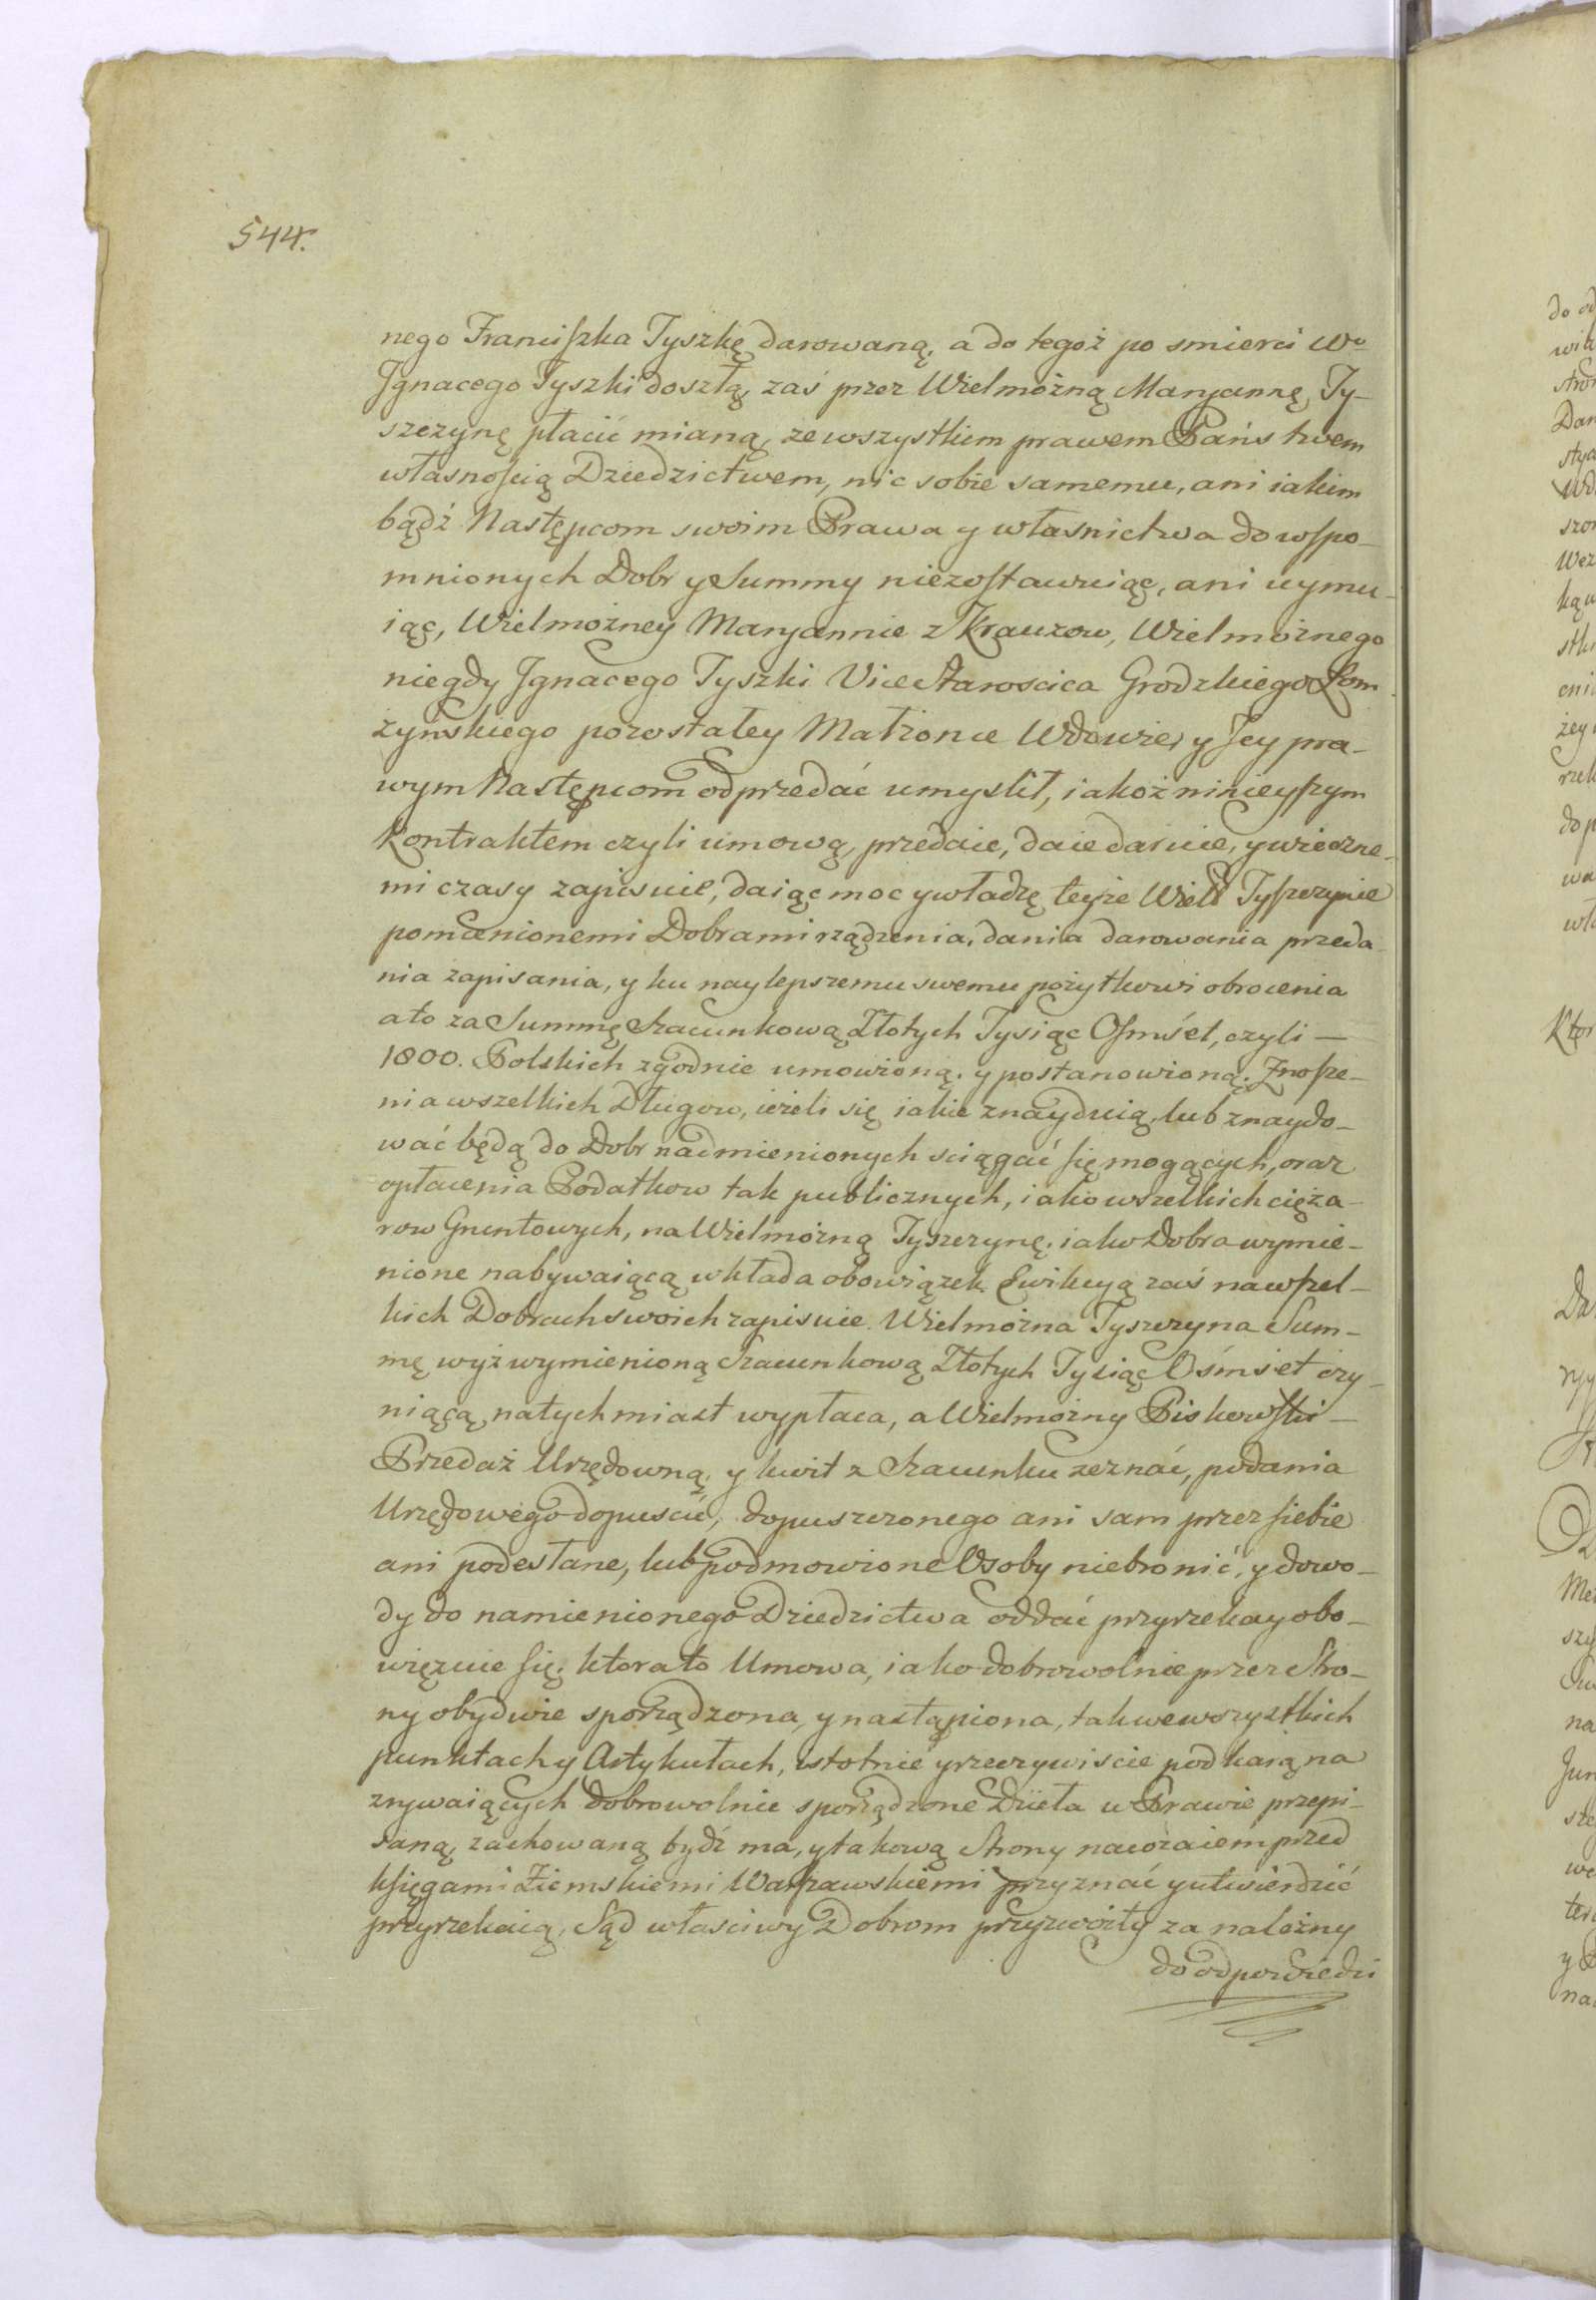 544.
nego Franciszka Tyszkę darowaną, a do tegoż po smierci Wo
Jgnacego Tyszki doszłą, zaś przez Wielmożną Maryannę Ty-
szczynę płacić mianą, ze wszystkiem prawem Państwem
własnością Dziedzictwem, nic sobie samemu, ani iakim
bądź Następcom swoim Prawa y własnictwa do wspo-
mnionych Dobr y Summy niezostawuiąc, ani uymu-
iąc, Wielmożney Maryannie z Krauzow, Wielmożnego
niegdy Jgnacego Tyszki Vice Staroscica Grodzkiego Łom-
żyńskiego pozostałey Małżonce Wdowie, y Jey pra-
wym Następcom odprzedać umyslił, iakoż ninieyszym
Kontraktem czyli umową, przedaie, daie daruie, y wieczne-
mi czasy zapisuie, daiąc moc y władzę teyże Wielo Tyszczynie
pomienionemi Dobrami rządzenia, dania darowania przeda-
nia zapisania, y ku naylepszemu swemu pożytkowi obrocenia
ato za Summę Szacunkową Złotych Tysiąc Osmset, czyli —
1800. Polskich zgodnie umowioną, y postanowioną. Znosze-
nia wszelkich Długow, ieżeli się iakie znayduią, lub znaydo-
wać będą do Dobr nadmienionych sciągać się mogących, oraz
opłacenia Podatkow tak publicznych, iako wszelkich cięża-
row Gruntowych, na Wielmożną Tyszczynę, iako Dobra wymie-
nione nabywaiącą wkłada obowiązek. Ewikcyą zaś na wszel-
kich Dobrach swoich zapisuie. Wielmożna Tyszczyna Sum-
mę wyż wymienioną Szacunkową Złotych Tysiąc Ośmset czy-
niącą, natychmiast wypłaca, a Wielmożny Piskowski —
Przedaż Urzędowną, y kwit z Szacunku zeznać, podania
Urzędowego dopuscić, dopuszczonego ani sam przez siebie
ani podesłane, lub podmowione Osoby niebronić, y dowo-
dy do namienionego Dziedzictwa oddać przyrzeka y obo-
więzuie się. ktora to Umowa, iako dobrowolnie przez Stro-
ny obydwie sporządzona, y nastąpiona, tak we wszystkich
punktach y Artykułach, istotnie y rzeczywiscie pod karą na
zrywaiących dobrowolnie sporządzone Dzieła w Prawie przepi-
saną, zachowaną bydź ma, y takową Strony nawzaiem przed
księgami Ziemskiemi Warszawskiemi przyznać y utwierdzić
przyrzekaią, Sąd własciwy Dobrom przyzwoity za należny
do odpowiedzi